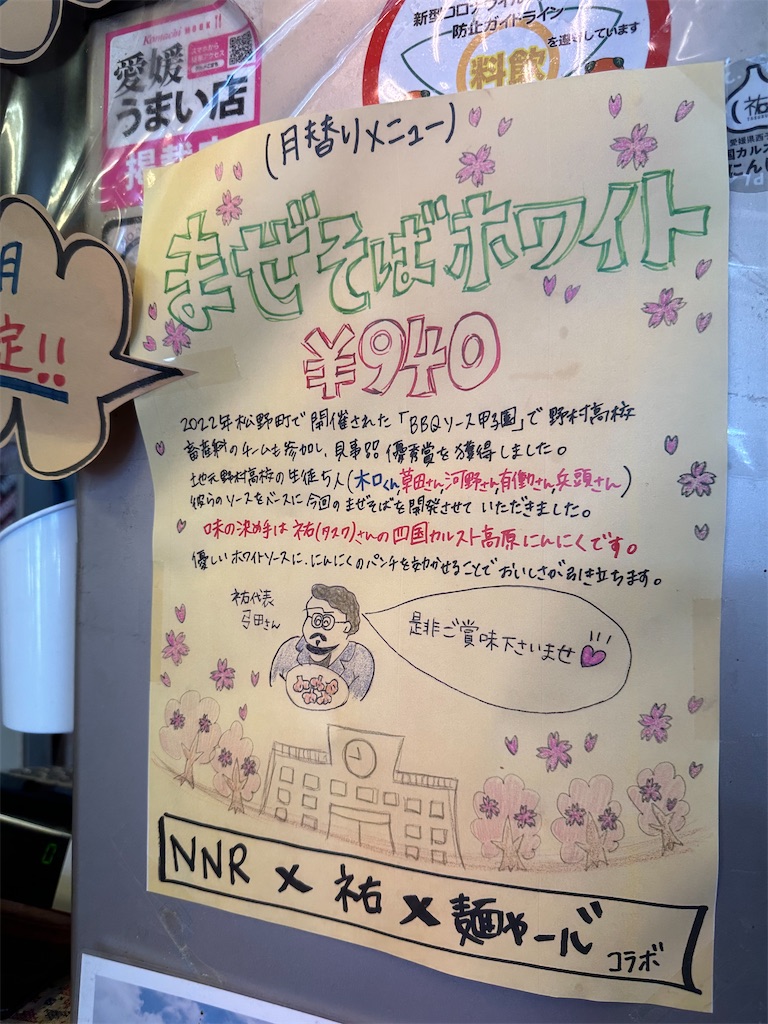 Komachi WORK!!
スマホから
簡単アクセス
愛媛
うまい店
新型コロナウイルス
防止ガイドライン
を遵守しています
料飲
祐
愛媛県西予
国カルス
にんに
(月替りメニュー)
まぜそばホワイト
¥940
月
定!!
2022年松野町で開催された「BBQソース甲子園」で野村高校
畜産科のチームも参加し、見事 優秀賞を獲得しました。
地元野村高校の生徒5人(木口くん,草田さん,河野さん,有働さん,兵頭さん)
彼らのソースをベースに今回のまぜそばを開発させていただきました。
味の決め手は祐(タスク)さんの四国カルスト高原にんにくです。
優しいホワイトソースに、にんにくのパンチを効かせることでおいしさが引き立ちます。
祐代表
弓田さん
是非ご賞味下さいませ
NNR × 祐 × 麺や一ル
コラボ
0